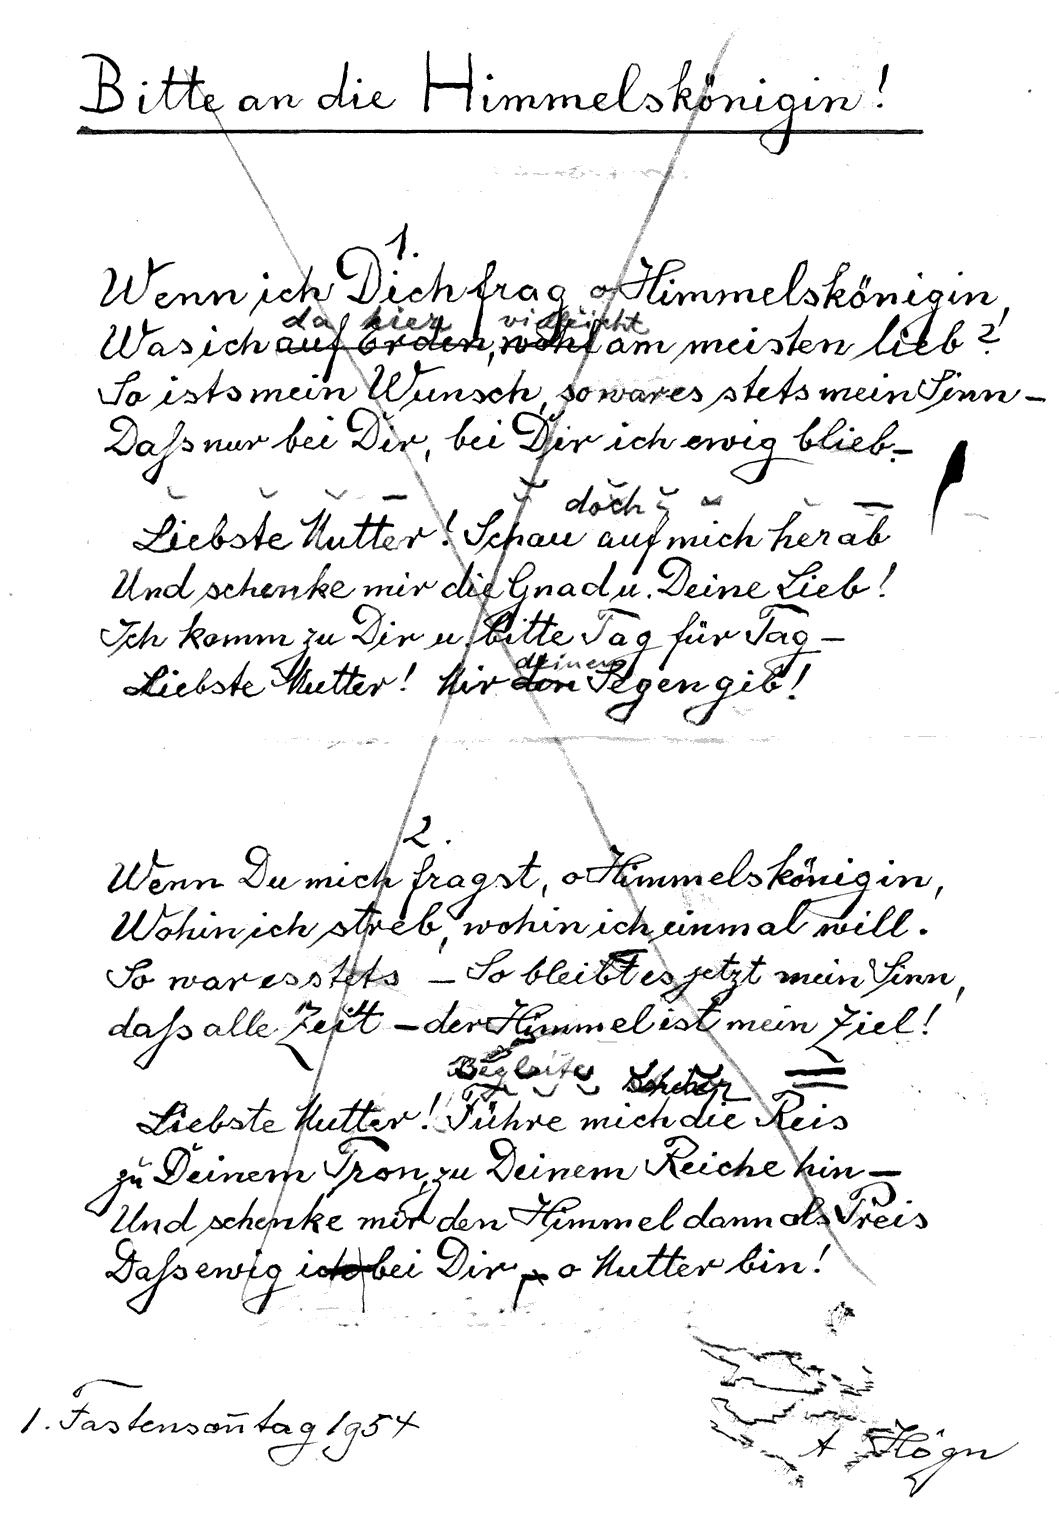 Bitte an die Himmelskönigin!
1.
Wenn ich Dich frag o Himmelskönigin,
da hier vielleicht
Was ich auf Erden, wohl am meisten lieb?
So ists mein Wunsch, so war es stets mein Sinn –
Daſs nur bei Dir, bei Dir ich ewig blieb. –
doch
Liebste Mutter! Schau auf mich herab
Und schenke mir die Gnad u. Deine Lieb!
Ich komm zu Dir u. bitte Tag für Tag –
deinen
Liebste Mutter! Mir den Segen gib!
2.
Wenn Du mich fragst, o Himmelskönigin,
Wohin ich streb, wohin ich einmal will.
So war es stets – So bleibt es jetzt mein Sinn,
daſs alle Zeit – der Himmel ist mein Ziel!
Begleite
Liebste Mutter! Führe mich die Reis
zu Deinem Tron, zu Deinem Reiche hin –
Und schenke mir den Himmel dann als Preis
Daſs ewig ich bei Dir, o Mutter bin!
1. Fastenson̄tag 1954
A Högn